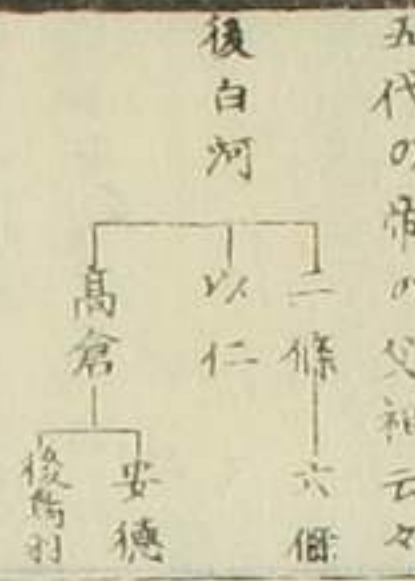 五代の帝の父祖云々
後白河
二條
六條
以仁
高倉
安德
後鳥羽